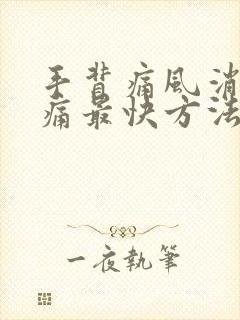 手背痛风消
痛最快方法
一夜執筆